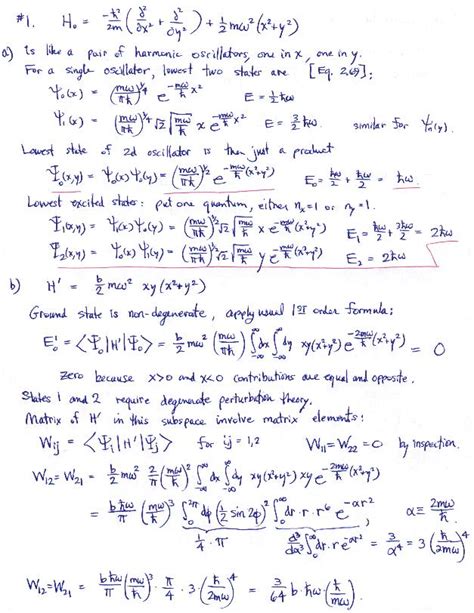 #1. H₀ = -ħ²/2m (∂²/∂x² + ∂²/∂y²) + ½ mω² (x²+y²)
a) Is like a pair of harmonic oscillators, one in x, one in y.
For a single oscillator, lowest two states are [Eq. 2.69]:
ψ₀(x) = (mω/πħ)^¼ e^(-mω/2ħ x²) E = ½ħω
ψ₁(x) = (mω/πħ)^¼ √2 √(mω/ħ) x e^(-mω/2ħ x²) E = 3/2 ħω similar for ψₙ(y).
Lowest state of 2d oscillator is then just a product
Ψ₀(x,y) = ψ₀(x)ψ₀(y) = (mω/πħ)^½ e^(-mω/2ħ (x²+y²)) E₀ = ħω/2 + ħω/2 = ħω.
Lowest excited states: put one quantum, either nₓ=1 or n_y=1.
Ψ₁(x,y) = ψ₁(x)ψ₀(y) = (mω/πħ)^½ √2 √(mω/ħ) x e^(-mω/2ħ (x²+y²)) E₁ = ħω/2 + 3ħω/2 = 2ħω
Ψ₂(x,y) = ψ₀(x)ψ₁(y) = (mω/πħ)^½ √2 √(mω/ħ) y e^(-mω/2ħ (x²+y²)) E₂ = 2ħω
b) H' = b/2 mω² xy (x²+y²)
Ground state is non-degenerate, apply usual 1st order formula:
E₀' = ⟨Ψ₀|H'|Ψ₀⟩ = b/2 mω² (mω/πħ) ∫_-∞^∞ dx ∫_-∞^∞ dy xy(x²+y²) e^(-2mω/2ħ (x²+y²)) = 0
zero because x>0 and x<0 contributions are equal and opposite.
States 1 and 2 require degenerate perturbation theory.
Matrix of H' in this subspace involve matrix elements:
Wij = ⟨Ψi|H'|Ψj⟩ for ij = 1,2 W₁₁ = W₂₂ = 0 by inspection.
W₁₂ = W₂₁ = b/2 mω² 2/π (mω/ħ)² ∫_-∞^∞ dx ∫_-∞^∞ dy xy (x²+y²) xy e^(-2mω/2ħ (x²+y²))
= bħω/π (mω/ħ)³ ∫_0^2π dφ (½ sin 2φ)² ∫_0^∞ dr·r·r⁶ e^(-αr²), α ≡ 2mω/2ħ
¼·π d³/dα³ ∫_0^∞ dr·r e^(-αr²) = 3/α⁴ = 3 (ħ/2mω)⁴
W₁₂ = W₂₁ = bħω/π (mω/ħ)³ · π/4 · 3 · (ħ/2mω)⁴ = 3/64 b·ħω·(ħ/mω)